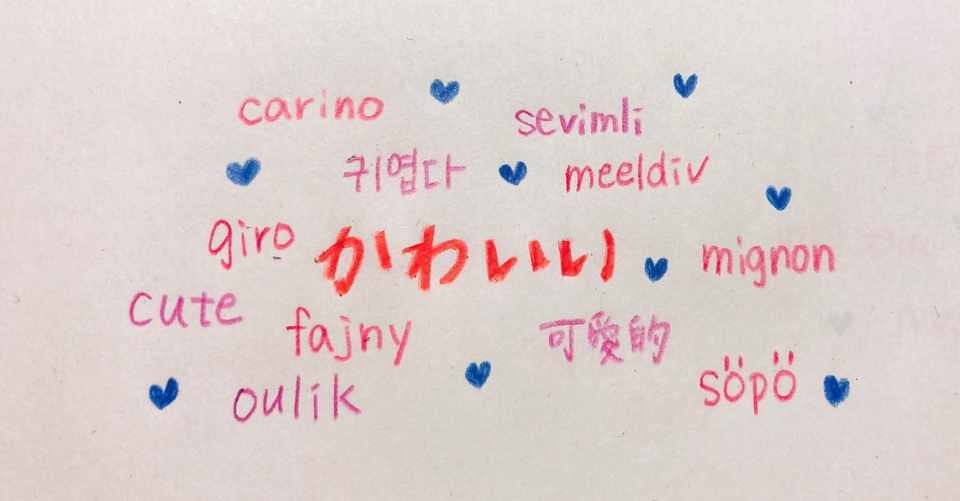 carino
sevimli
귀엽다
meeldiv
giro
かわいい
mignon
cute
fajny
可愛的
söpö
oulik